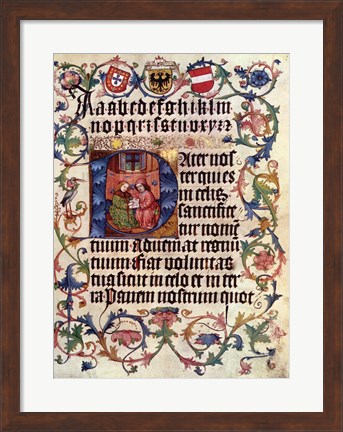 Aaabcdefghiklm
nopqrſstuvxyz
Pater nos
ter qui es
in celis
sanctifice
tur nome
tuum Adveniat regnū
tuum fiat voluntas
tua sicut in celo et in ter
ra Panem nostrum quot